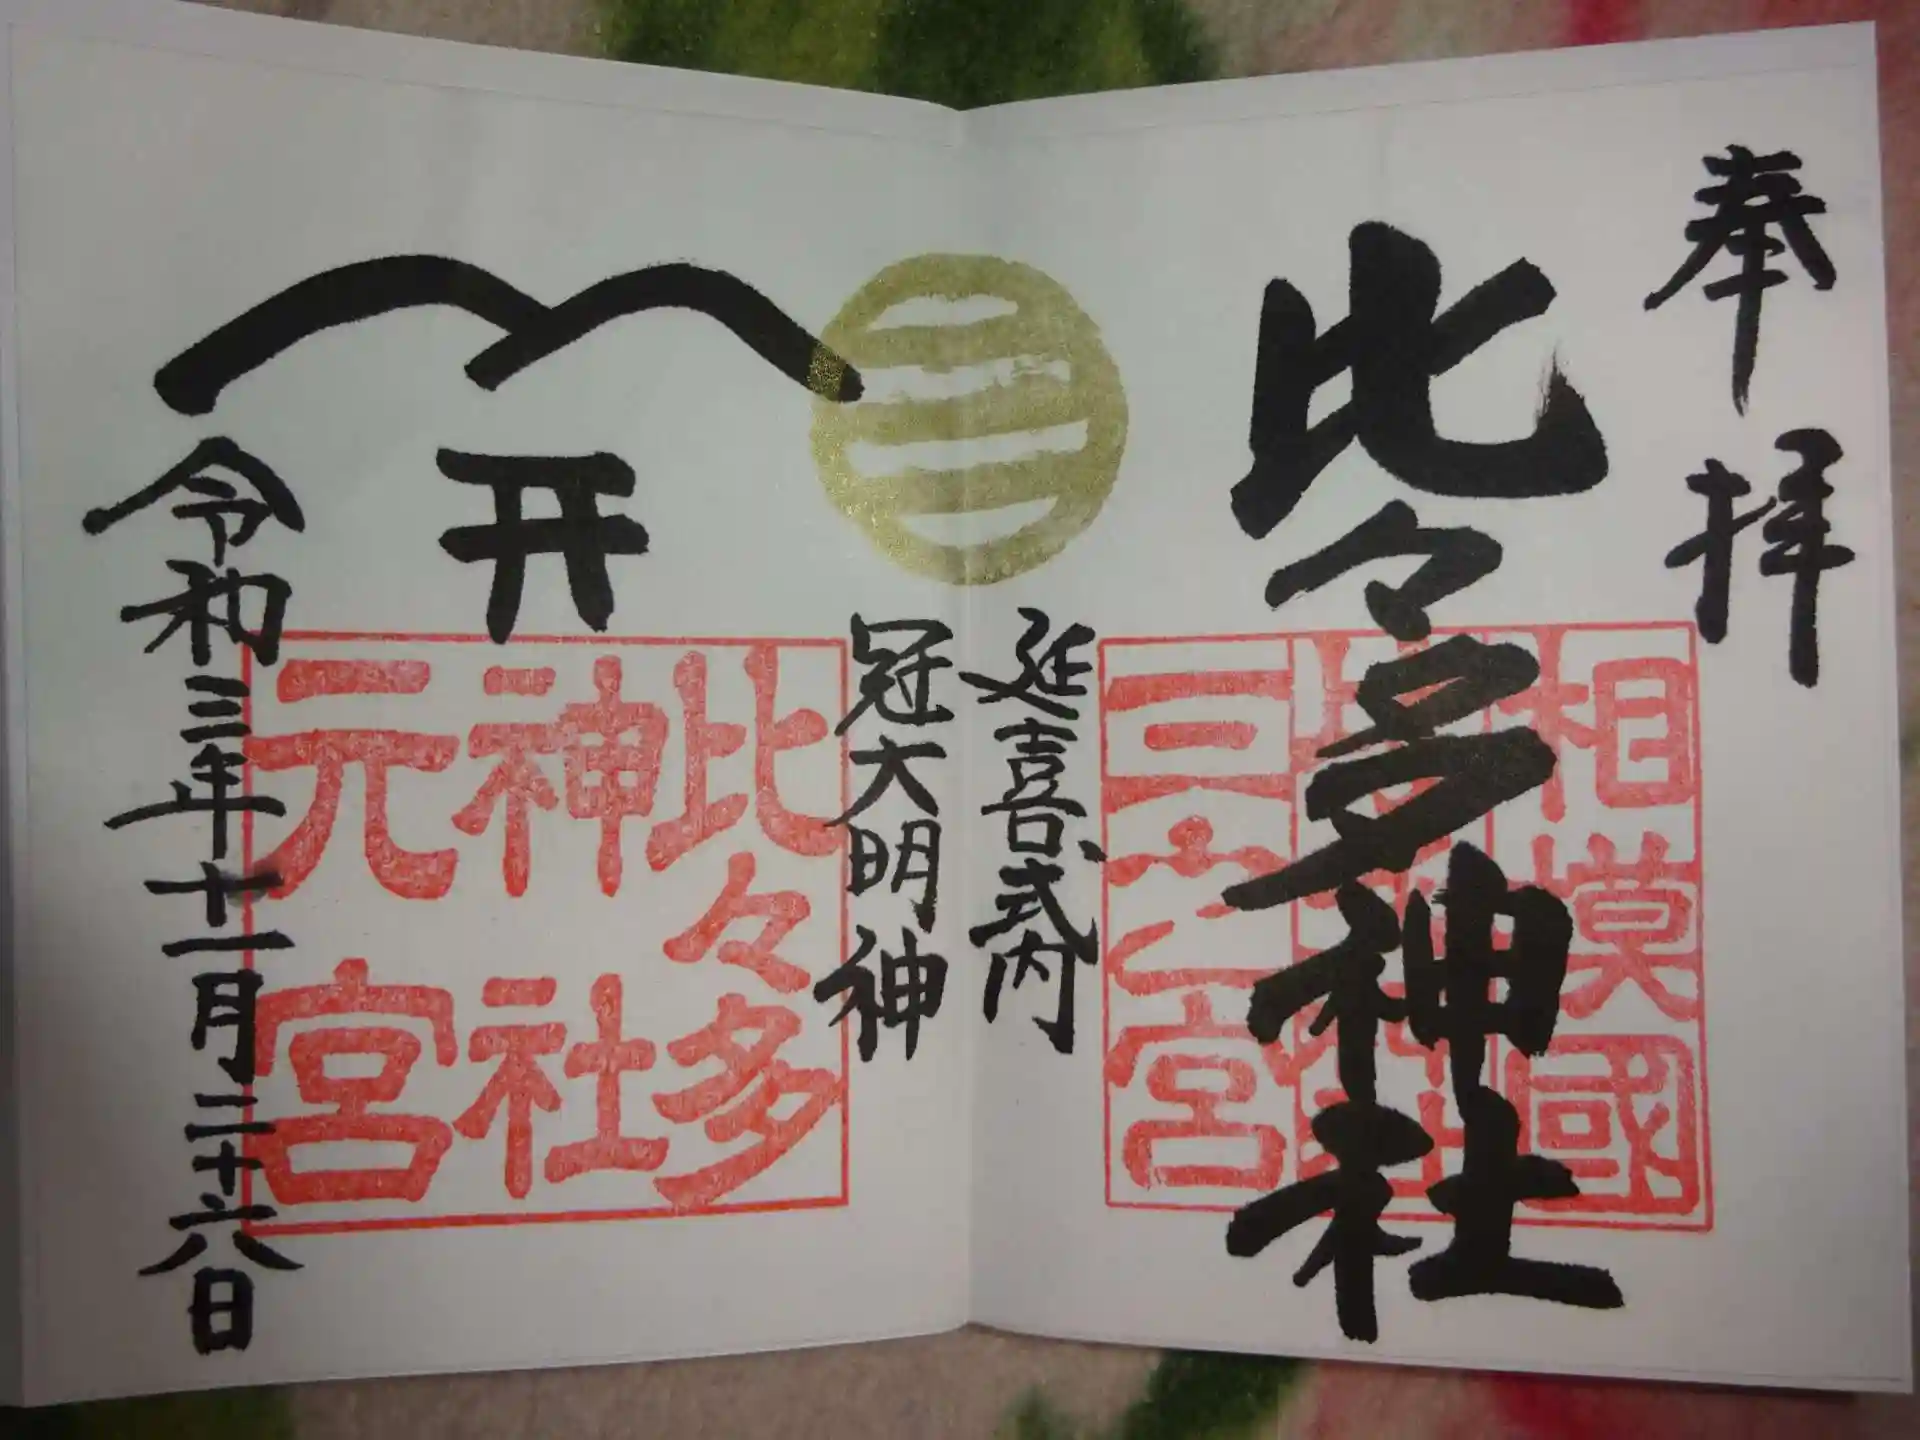 奉拝
比々多神社
相模國
三之宮
延喜式内
冠大明神
比々多
神社
元宮
令和三年十一月二十六日